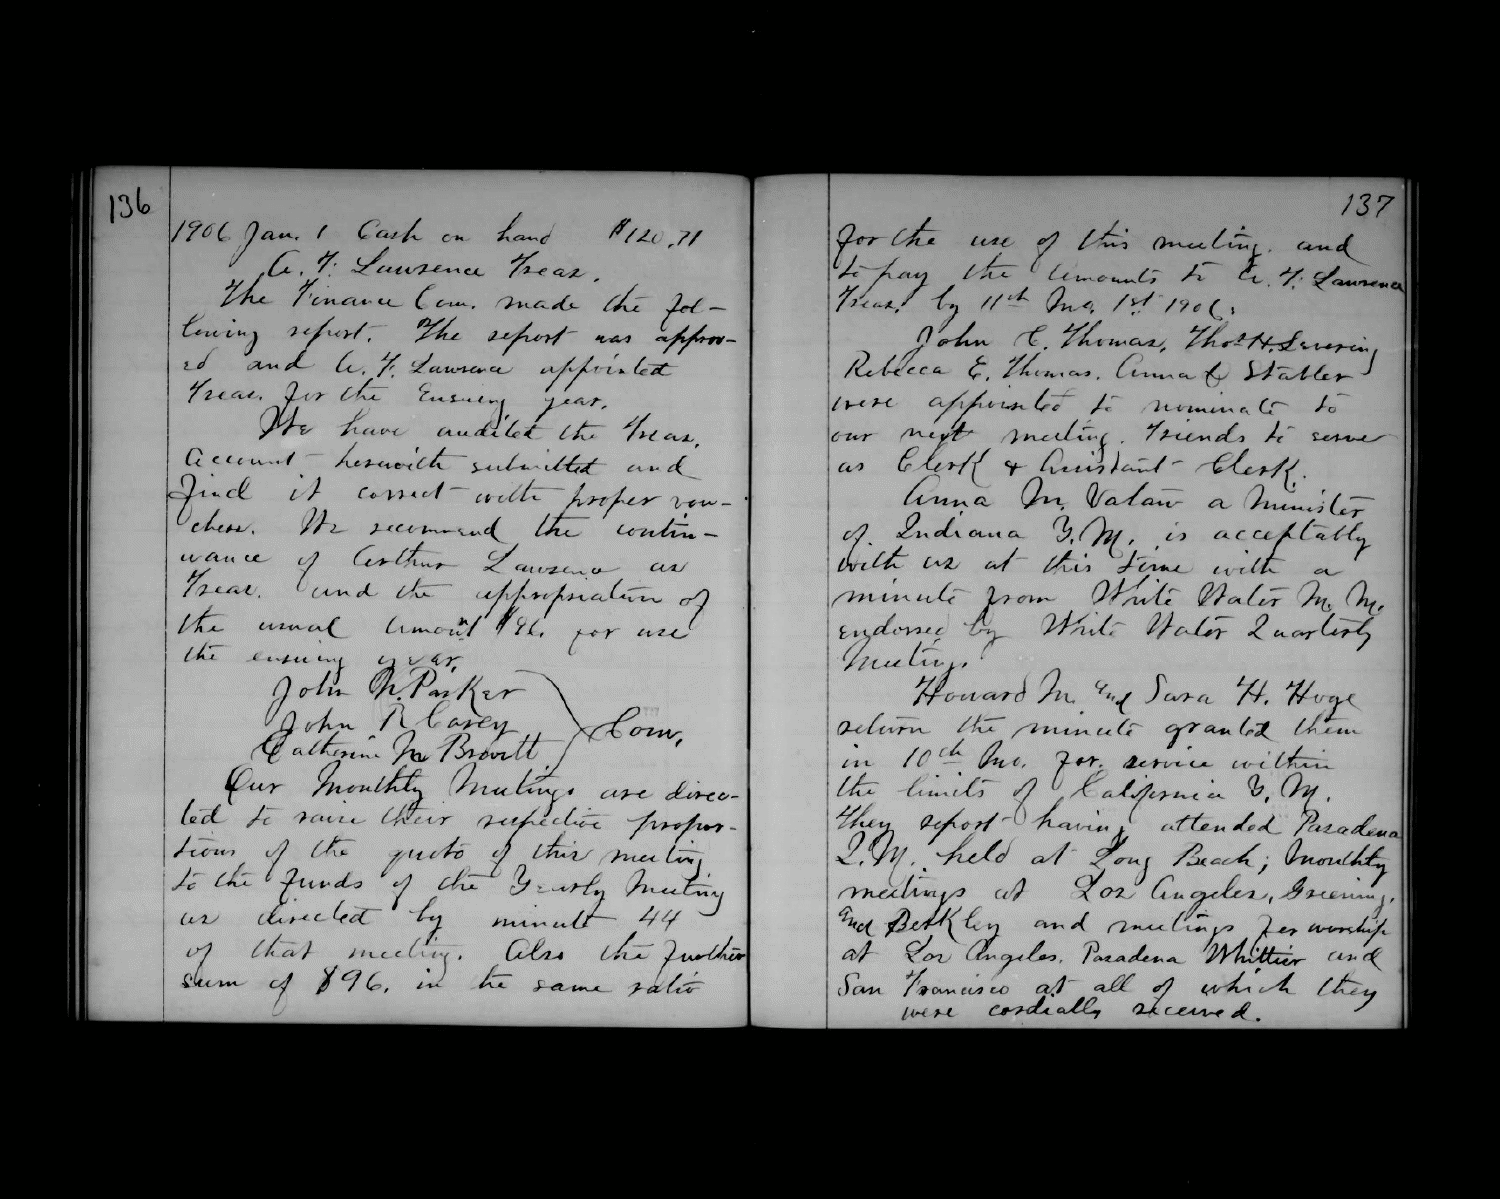 136
1906 Jan. 1 Cash on hand $120.71
A. F. Lawrence Treas.
The Finance Com. made the fol-
lowing report. The report was approv-
ed and A. F. Lawrence appointed
Treas. for the ensuing year.
We have audited the Treas.
account herewith submitted and
find it correct with proper vou-
chers. We recommend the contin-
uance of Arthur Lawrence as
Treas. and the appropriation of
the usual amount $96. for use
the ensuing year.
John N. Parker
John R Carey
Catherine M
Com.
Our Monthly Meetings are direc-
ted to raise their respective propor-
tions of the quota of this meeting
to the funds of the Yearly Meeting
as directed by minute 44
of that meeting. Also the further
sum of $96. in the same ratio
137
for the use of this meeting. and
to pay the amounts to A. F. Lawrence
Treas. by 11th Mo. 1st 1906.
John C. Thomas, Thos. H.
Rebecca E. Thomas. Anna Stabler
were appointed to nominate to
our next meeting. Friends to serve
as Clerk & Assistant Clerk.
Anna M. a Minister
of Indiana Y. M. is acceptably
with us at this time with a
minute from White Water M. M.
endorsed by White Water Quarterly
Meeting.
Howard M. and Sara H. Hoge
return the minute granted them
in 10th Mo. for service within
the limits of California Y. M.
They report having attended Pasadena
Q. M. held at Long Beach; Monthly
meetings at Los Angeles,
and Berkley and meetings for worship
at Los Angeles. Pasadena Whittier and
San Francisco at all of which they
were cordially received.